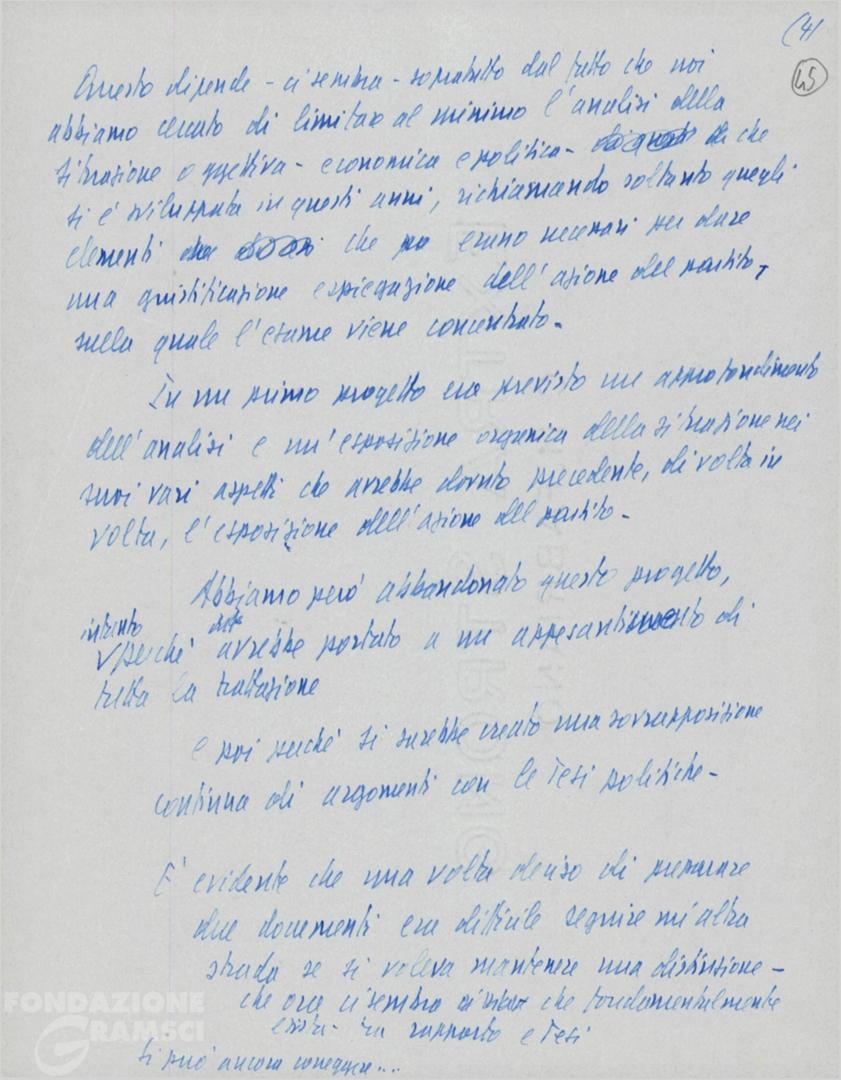 (4)
45
Questo dipende - ci sembra - sopratutto dal fatto che noi
abbiamo cercato di limitare al minimo l'analisi della
situazione oggettiva - economica e politica - che
si è sviluppata in questi anni, richiamando soltanto quegli
elementi che erano necessari per dare
una giustificazione e spiegazione dell'azione del partito,
sulla quale l'esame viene concentrato -
In un primo progetto era previsto un approfondimento
dell'analisi e un'esposizione organica della situazione nei
suoi vari aspetti che avrebbe dovuto precedente, di volta in
volta, l'esposizione dell'azione del partito -
Abbiamo però abbandonato questo progetto,
intanto
perché avrebbe portato a un appesantimento di
tutta la trattazione
e poi perché si sarebbe creato una sovrapposizione
continua di argomenti con le Tesi politiche -
E' evidente che una volta deciso di preparare
due documenti era difficile seguire un'altra
strada se si voleva mantenere una distinzione -
che ora ci sembra che fondamentalmente
esista - tra rapporto e Tesi
Si può ancora correggere...
FONDAZIONE
GRAMSCI